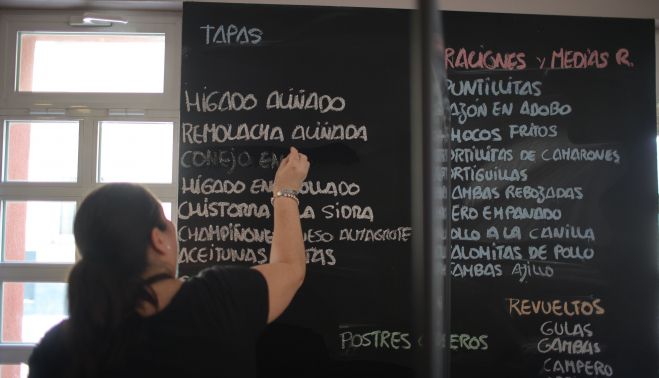 TAPAS
HÍGADO ALIÑADO
REMOLACHA ALIÑADA
CONEJO EN
HÍGADO ENCEBOLLADO
CHISTORRA A LA SIDRA
CHAMPIÑONES QUESO ALMAGROTE
ACEITUNAS
POSTRES CASEROS
RACIONES Y MEDIAS R.
PUNTILLITAS
CAZÓN EN ADOBO
CHOCOS FRITOS
TORTILLITAS DE CAMARONES
ORTIGUILLAS
GAMBAS REBOZADAS
MERO EMPANADO
POLLO A LA CANILLA
PALOMITAS DE POLLO
GAMBAS AJILLO
REVUELTOS
GULAS
GAMBAS
CAMPERO